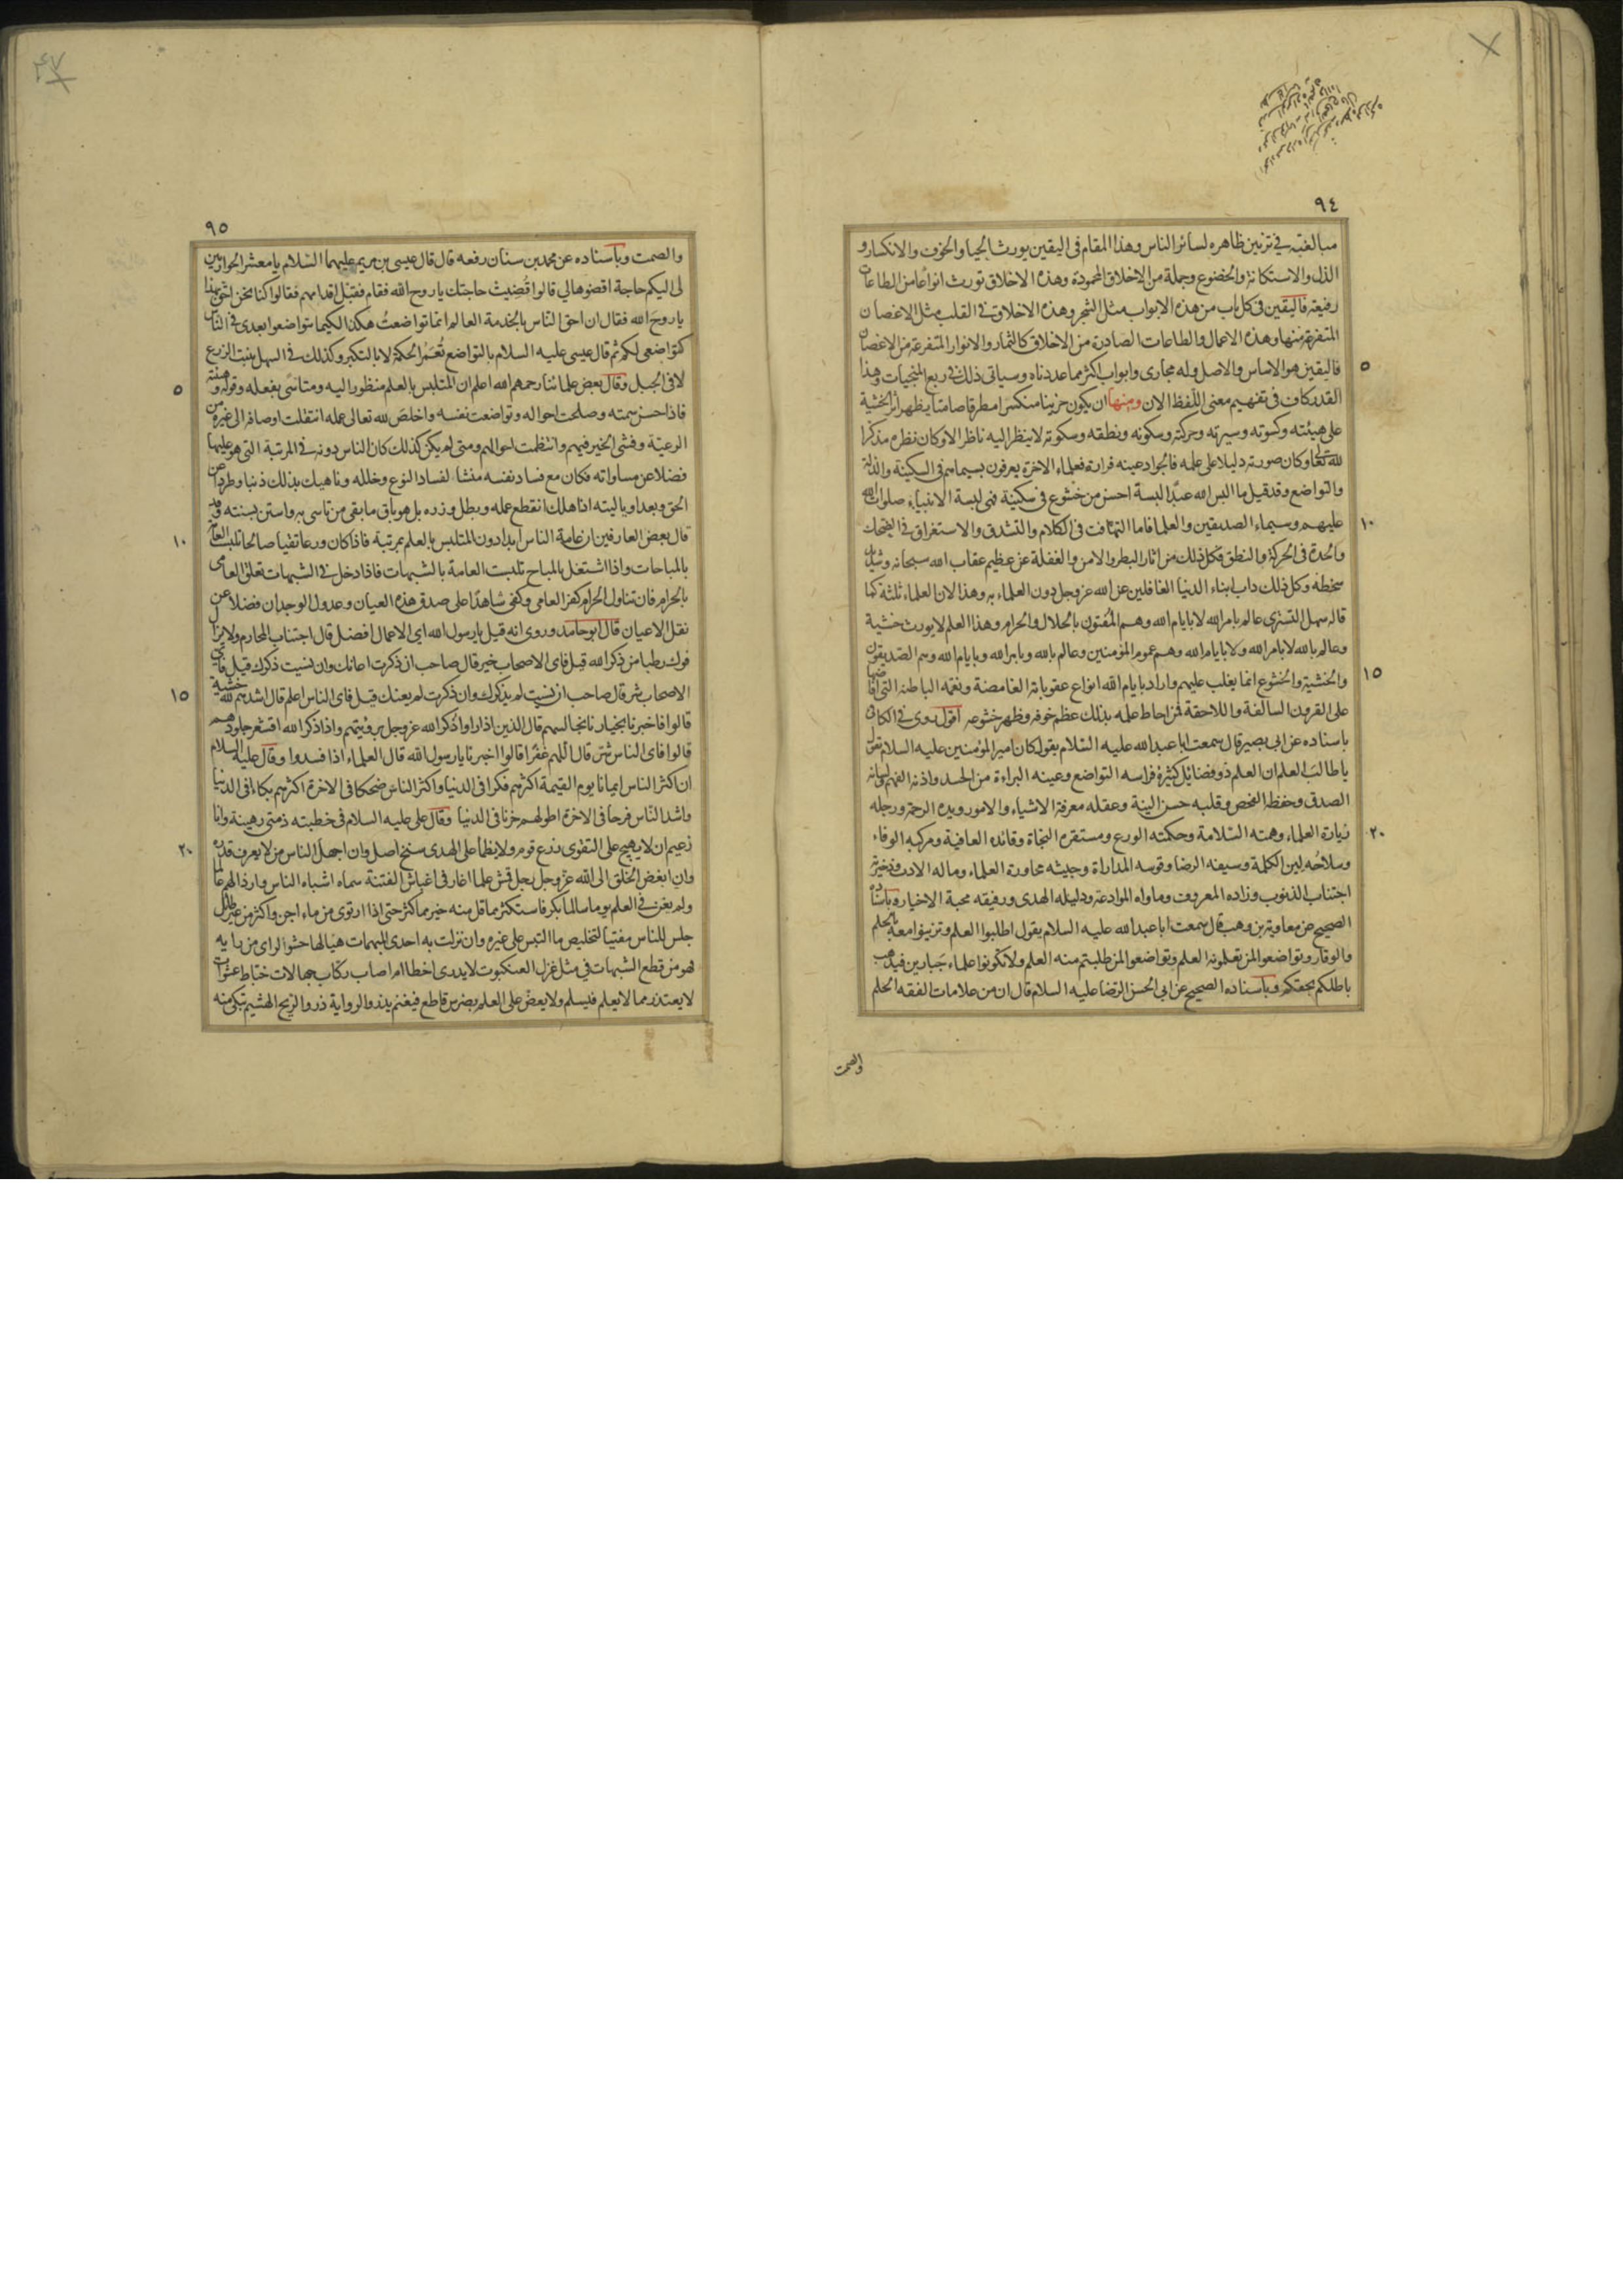 ٩٤
مبالغته في تزيين ظاهره لسائر الناس وهذا المقام في اليقين يورث الحيا والخوف والانكسار و
الذل والاستكانة والخضوع وجملة من الاخلاق المحمودة وهذه الاخلاق تورث انواعًا من الطاعات
رفيعة فاليقين في كل باب من هذه الابواب مثل الشجر وهذه الاخلاق في القلب مثل الاغصان
المتفرعة منها وهذه الاعمال والطاعات الصادرة من الاخلاق كالثمار والانوار المتفرعة من الاغصان
٥
فاليقين هو الاساس والاصل وله مجارى وابواب اكثر مما عددناه وسياتى ذلك في ربع المنجيات وهذا
القدر كاف في تفهيم معنى اللفظ الان ومنها ان يكون حزينا منكسرا مطرقا صامتا يظهر اثر الخشية
على هيئته وكسوته وسيرته وحركته وسكونه ونطقه وسكوته لا ينظر اليه ناظر الا وكان نظره مذكرا
لله تعالى وكان صورته دليلا على علمه فالجواد عينه فراره فعلماء الاخرة يعرفون بسيماهم في السكينة والذلة
والتواضع وقد قيل ما البس الله عبدًا لبسة احسن من خشوع في سكينة فهى لبسة الانبياء صلوات الله
١٠
عليهم وسيماء الصديقين والعلما فاما التهافت في الكلام والتشدق والاستغراق في الضحك
والحدة في الحركة والنطق فكل ذلك من اثار البطر والامن والغفلة عن عظيم عقاب الله سبحانه وشديد
سخطه وكل ذلك داب ابناء الدنيا الغافلين عن الله عز وجل دون العلماء به وهذا لان العلماء ثلثة كما
قاله سهل التسترى عالم بامر الله لا بايام الله وهم المفتون بالحلال والحرام وهذا العلم لا يورث خشية
وعالم بالله لا بامر الله ولا بايام الله وهم عموم المؤمنين وعالم بالله وبامر الله وبايام الله وهم الصديقون
١٥
والخشية والخشوع انما يغلب عليهم واراد بايام الله انواع عقوباته الغامضة ونعمه الباطنة التي افاضها
على القرون السالفة واللاحقة فمن احاط علمه بذلك عظم خوفه وظهر خشوعه اقول روى في الكافى
باسناده عن ابى بصير قال سمعت ابا عبد الله عليه السلام يقول كان امير المؤمنين عليه السلام يقول
يا طالب العلم ان العلم ذو فضائل كثيرة فراسه التواضع وعينه البراءة من الحسد واذنه الفهم ولسانه
الصدق وحفظه الفحص وقلبه حسن النية وعقله معرفة الاشياء والامور ويده الرحمة ورجله
٢٠
زيارة العلماء وهمته السلامة وحكمته الورع ومستقره النجاة وقائده العافية ومركبه الوفاء
وسلاحه لين الكلمة وسيفه الرضا وقوسه المداراة وجيشه محاورة العلماء وماله الادب وذخيرته
اجتناب الذنوب وزاده المعروف وماواه الموادعة ودليله الهدى ورفيقه محبة الاخيار وباسناده
الصحيح عن معاوية بن وهب قال سمعت ابا عبد الله عليه السلام يقول اطلبوا العلم وتزينوا معه بالحلم
والوقار وتواضعوا لمن تعلمونه العلم وتواضعوا لمن طلبتم منه العلم ولا تكونوا علماء جبارين فيذهب
باطلكم بحقكم وباسناده الصحيح عن ابى الحسن الرضا عليه السلام قال ان من علامات الفقه الحلم
والصمت
٩٥
والصمت وباسناده عن محمد بن سنان رفعه قال قال عيسى بن مريم عليهما السلام يا معشر الحواريين
لى اليكم حاجة اقضوها لي قالوا قضيت حاجتك يا روح الله فقام فقبل اقدامهم فقالوا كنا نحن احق بهذا
يا روح الله فقال ان احق الناس بالخدمة العالم انما تواضعت هكذا لكيما تتواضعوا بعدى في الناس
كتواضعى لكم ثم قال عيسى عليه السلام بالتواضع تعمر الحكمة لا بالتكبر وكذلك في السهل ينبت الزرع
٥
لا في الجبل وقال بعض علمائنا رحمهم الله اعلم ان المتلبس بالعلم منظور اليه ومتاسى بفعله وقوله وهيئته
فاذا حسن سمته وصلحت احواله وتواضعت نفسه واخلص لله تعالى عمله انتقلت اوصافه الى غيره من
الرعية وفشى الخير فيهم وانتظمت احوالهم ومتى لم يكن كذلك كان الناس دونه في المرتبة التى هو عليها
فضلا عن مساواته فكان مع فساد نفسه منشا لفساد النوع وخلله وناهيك بذلك ذنبا وطردا عن
الحق وبعدا ويا ليته اذا هلك انقطع عمله وبطل وزره بل هو باق ما بقى من تاسى به واستن بسنته وقد
١٠
قال بعض العارفين ان عامة الناس ابدا دون المتلبس بالعلم بمرتبة فاذا كان ورعا تقيا صالحا تلبست العامة
بالمباحات واذا اشتغل بالمباح تلبست العامة بالشبهات فاذا دخل في الشبهات تعلق العامى
بالحرام فان تناول الحرام كفر العامى وكفى شاهدًا على صدق هذه العيان وعدول الوجدان فضلا عن
نقل الاعيان قال ابو حامد وروى انه قيل يا رسول الله اى الاعمال افضل قال اجتناب المحارم ولا يزال
فوك رطبا من ذكر الله قيل فاى الاصحاب خير قال صاحب ان ذكرت اعانك وان نسيت ذكرك قيل فاى
١٥
الاصحاب شر قال صاحب ان نسيت لم يذكرك وان ذكرت لم يعنك قيل فاى الناس اعلم قال اشدهم لله خشية
قالوا فاخبرنا بخيارنا نجالسهم قال الذين اذا راوا ذكر الله عز وجل برؤيتهم واذا ذكر الله اقشعر جلودهم
قالوا فاى الناس شر قال اللهم غفرًا قالوا اخبرنا يا رسول الله قال العلماء اذا فسدوا وقال عليه السلام
ان اكثر الناس ايمانا يوم القيمة اكثرهم فكرا في الدنيا واكثر الناس ضحكا في الاخرة اكثرهم بكاء في الدنيا
واشد الناس فرحا في الاخرة اطولهم حزنا في الدنيا وقال على عليه السلام في خطبته ذمتى رهينة وانا
٢٠
زعيم ان لا يهيج على التقوى زرع قوم ولا يظما على الهدى سنخ اصل وان اجهل الناس من لا يعرف قدره
وان ابغض الخلق الى الله عز وجل رجل قمش علما اغار في اغباش الفتنة سماه اشباه الناس وارذالهم عالما
ولم يغن في العلم يوما سالما بكر فاستكثر مما قل منه خير مما كثر حتى اذا ارتوى من ماء اجن واكثر من غير طائل
جلس للناس مفتيا لتخليص ما التبس على غيره وان نزلت به احدى المبهمات هيا لها حشو الراى من رايه
فهو من قطع الشبهات في مثل غزل العنكبوت لا يدرى اخطا ام اصاب ركاب جهالات خباط عشوات
لا يعتذر مما لا يعلم فيسلم ولا يعض على العلم بضرس قاطع فيغنم يذرو الرواية ذرو الريح الهشيم تبكى منه